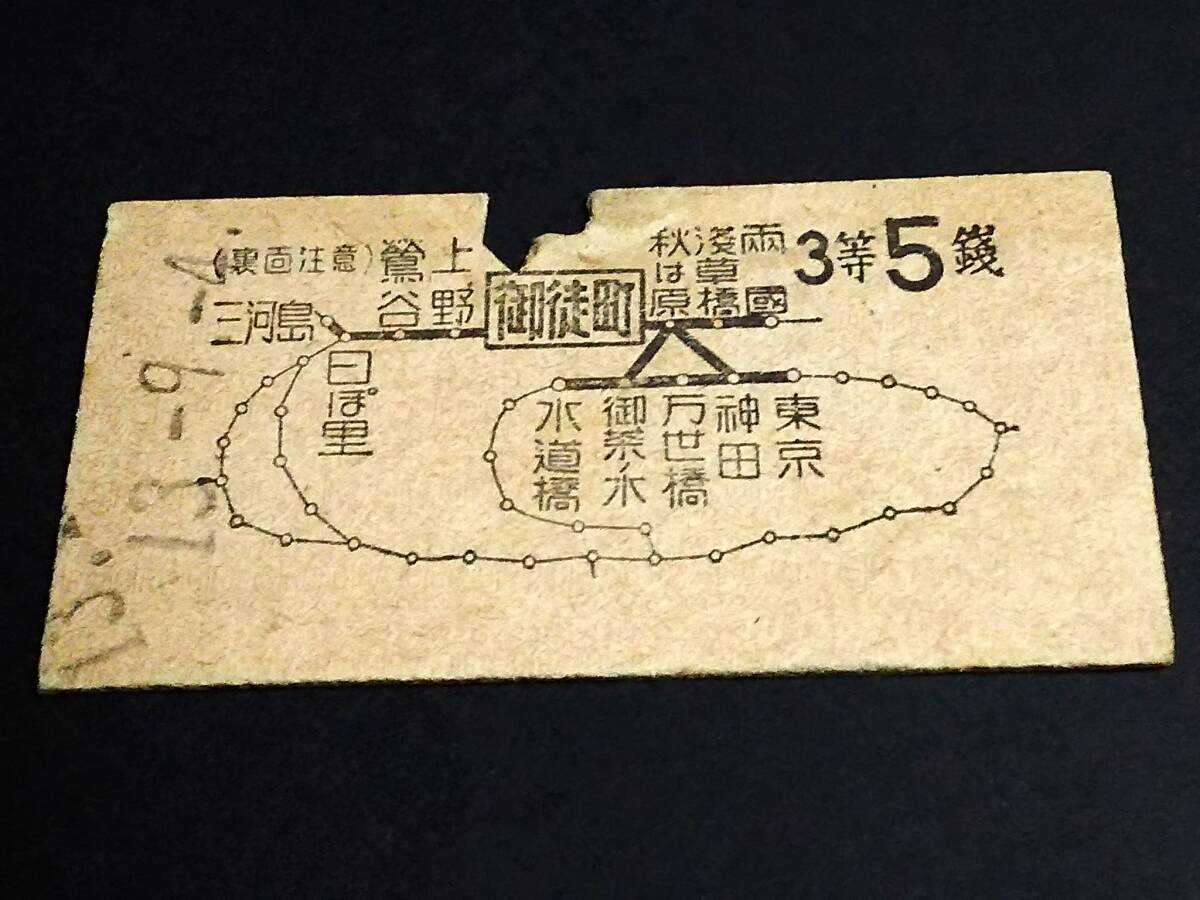 (裏面注意)
三河島
日ぽ里
鶯谷
上野
御徒町
秋は原
淺草橋
兩國
3等5錢
水道橋
御茶ノ水
万世橋
神田
東京
13.-9.-4